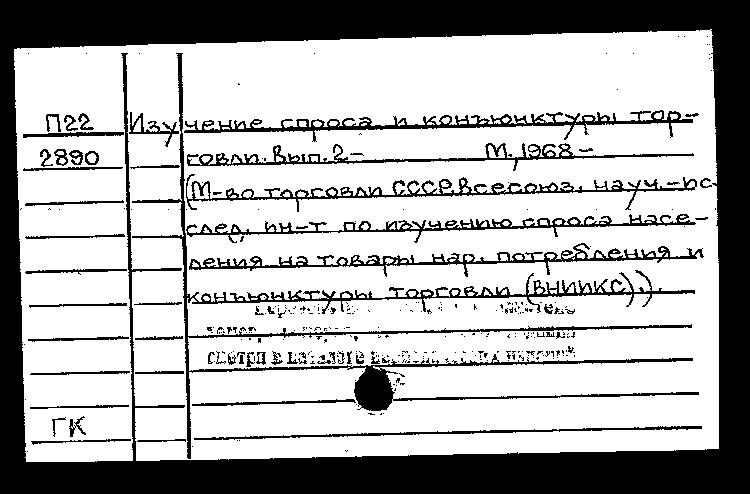 П22 Изучение спроса и конъюнктуры тор-
2890 говли. Вып. 2- М., 1968-
(М-во торговли СССР. Всесоюз. науч.-ис-
след. ин-т по изучению спроса насе-
ления на товары нар. потребления и
конъюнктуры торговли (ВНИИКС).).
смотри в каталоге
ГК